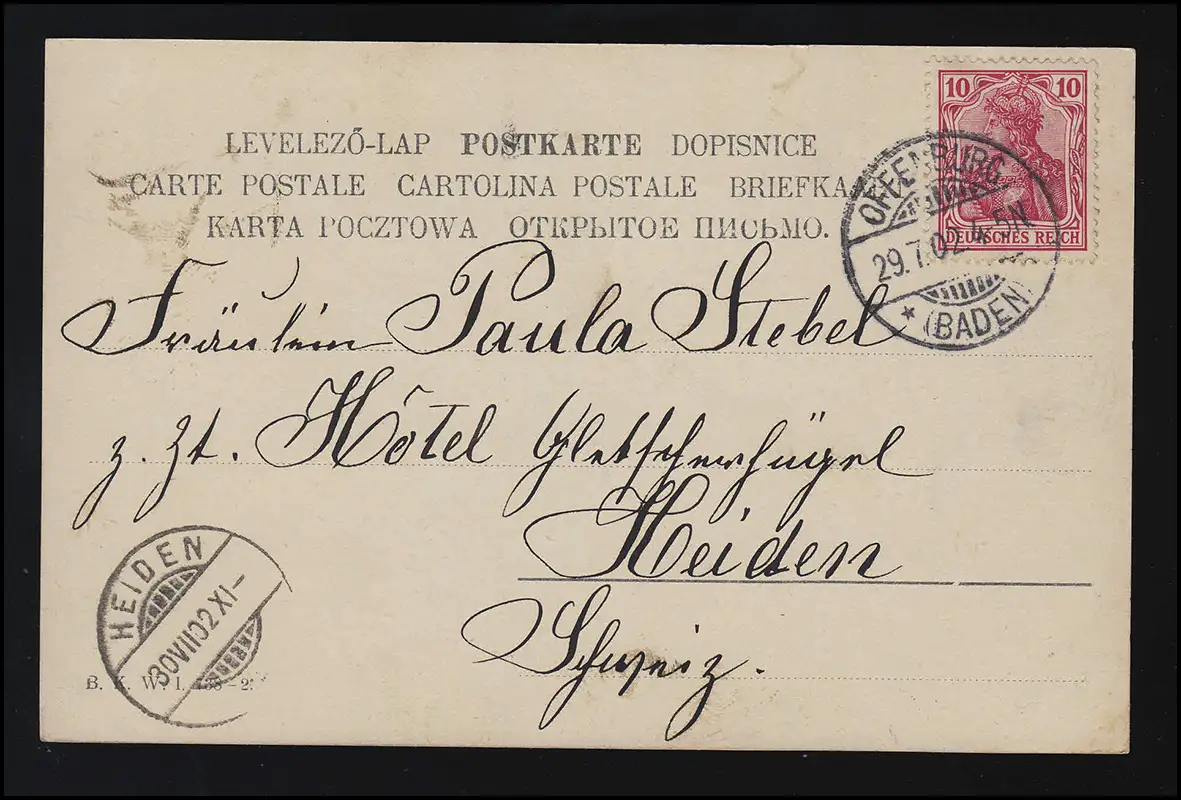 LEVELEZŐ-LAP POSTKARTE DOPISNICE
CARTE POSTALE CARTOLINA POSTALE BRIEFKA
KARTA POCZTOWA ОТКРЫТОЕ ПИСЬМО.
10 10
DEUTSCHES REICH
OFFENBURG
29.7.02. 4-5N
* (BADEN)
Fräulein Paula Stebel
z. Zt. Hôtel Gletscherhügel
Heiden
Schweiz.
HEIDEN
30 VII 02 XI-
B. K. W. I.